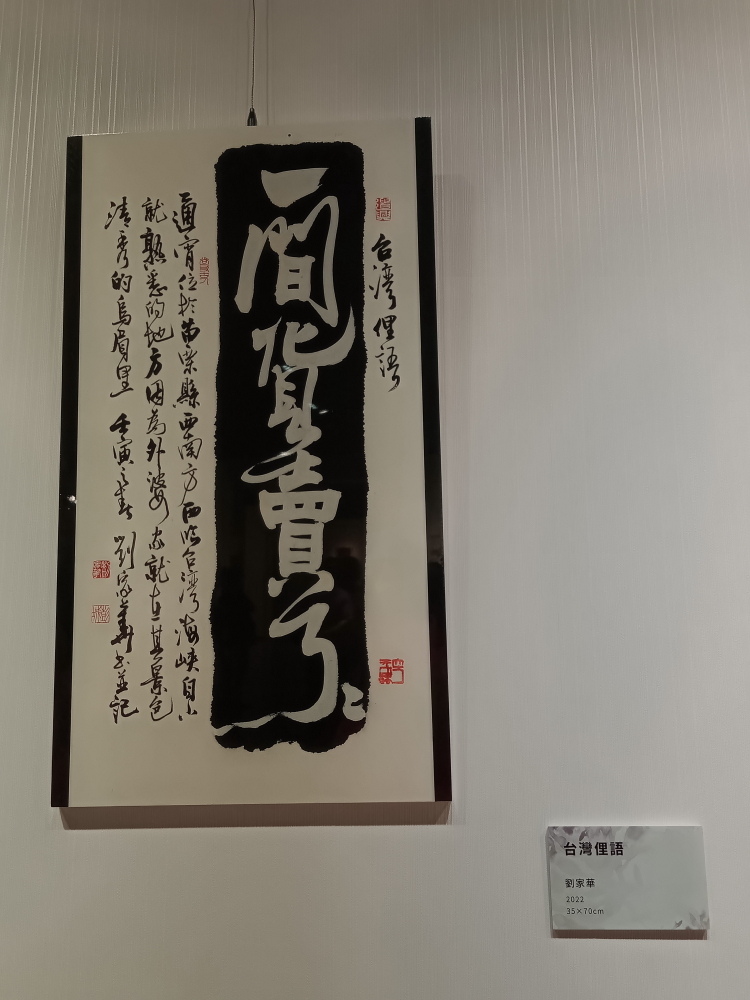 台湾俚語
一間貨賣了〻
通霄位於苗栗縣西南方西臨台湾海峽自小
就熟悉的地方因為外婆家就在其景色
清秀的烏眉里 壬寅之春 劉家華書並記
台灣俚語
劉家華
2022
35×70cm